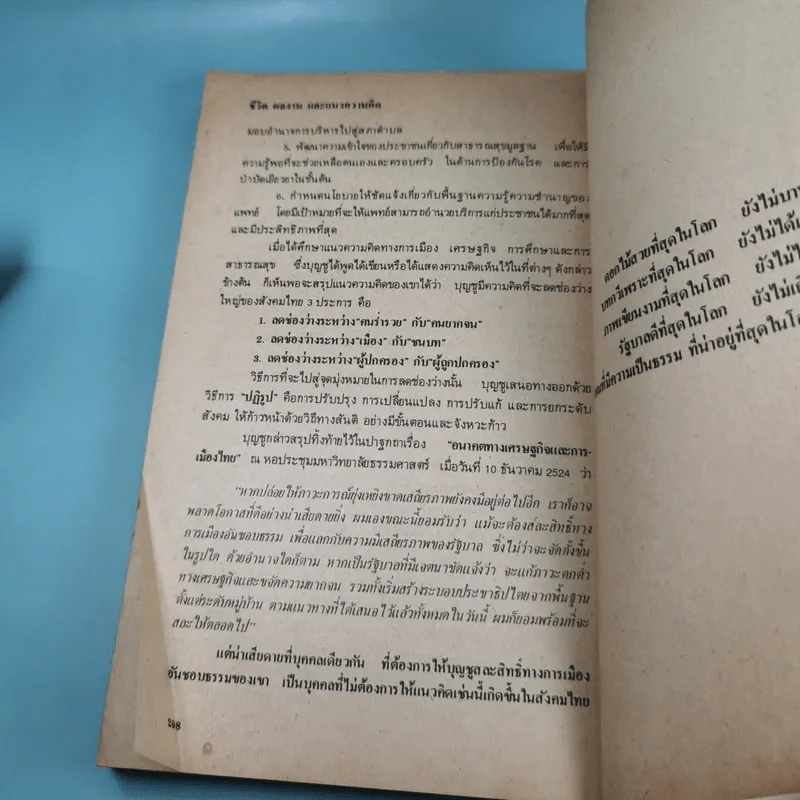 ชีวิต ผลงาน และแนวความคิด
มอบอำนาจการบริหารไปสู่สภาตำบล
5. พัฒนาความเข้าใจของประชาชนเกี่ยวกับสาธารณสุขมูลฐาน เพื่อให้มี
ความรู้พอที่จะช่วยเหลือตนเองและครอบครัว ในด้านการป้องกันโรค และการ
บำบัดเยียวยาในขั้นต้น
6. กำหนดนโยบายให้ชัดแจ้งเกี่ยวกับพื้นฐานความรู้ความชำนาญของ
แพทย์ โดยมีเป้าหมายที่จะให้แพทย์สามารถอำนวยบริการแก่ประชาชนได้มากที่สุด
และมีประสิทธิภาพที่สุด
เมื่อได้ศึกษาแนวความคิดทางการเมือง เศรษฐกิจ การศึกษาและการ
สาธารณสุข ซึ่งบุญชูได้พูดได้เขียนหรือได้แสดงความคิดเห็นไว้ในที่ต่างๆ ดังกล่าว
ข้างต้น ก็เห็นพอจะสรุปแนวความคิดของเขาได้ว่า บุญชูมีความคิดที่จะลดช่องว่าง
ใหญ่ของสังคมไทย 3 ประการ คือ
1. ลดช่องว่างระหว่าง"คนร่ำรวย" กับ"คนยากจน"
2. ลดช่องว่างระหว่าง"เมือง" กับ"ชนบท"
3. ลดช่องว่างระหว่าง"ผู้ปกครอง" กับ"ผู้ถูกปกครอง"
วิธีการที่จะไปสู่จุดมุ่งหมายในการลดช่องว่างนั้น บุญชูเสนอทางออกด้วย
วิธีการ "ปฏิรูป" คือการปรับปรุง การเปลี่ยนแปลง การปรับแก้ และการยกระดับ
สังคม ให้ก้าวหน้าด้วยวิถีทางสันติ อย่างมีขั้นตอนและจังหวะก้าว
บุญชูกล่าวสรุปทิ้งท้ายไว้ในปาฐกถาเรื่อง "อนาคตทางเศรษฐกิจและการ-
เมืองไทย" ณ หอประชุมมหาวิทยาลัยธรรมศาสตร์ เมื่อวันที่ 10 ธันวาคม 2524 ว่า
"หากปล่อยให้ภาวะการณ์ยุ่งเหยิงขาดเสถียรภาพยังคงมีอยู่ต่อไปอีก เราก็อาจ
พลาดโอกาสที่ดีอย่างน่าเสียดายยิ่ง ผมเองขณะนี้ยอมรับว่า แม้จะต้องสละสิทธิ์ทาง
การเมืองอันชอบธรรม เพื่อแลกกับความมีเสถียรภาพของรัฐบาล ซึ่งไม่ว่าจะจัดตั้งขึ้น
ในรูปใด ด้วยอำนาจใดก็ตาม หากเป็นรัฐบาลที่มีเจตนาชัดแจ้งว่า จะแก้ภาวะตกต่ำ
ทางเศรษฐกิจและขจัดความยากจน รวมทั้งเริ่มสร้างระบอบประชาธิปไตยจากพื้นฐาน
ตั้งแต่ระดับหมู่บ้าน ตามแนวทางที่ได้เสนอไว้แล้วทั้งหมดในวันนี้ ผมก็ยอมพร้อมที่จะ
สละให้ตลอดไป"
แต่น่าเสียดายที่บุคคลเดียวกัน ที่ต้องการให้บุญชูสละสิทธิ์ทางการเมือง
อันชอบธรรมของเขา เป็นบุคคลที่ไม่ต้องการให้แนวคิดเช่นนี้เกิดขึ้นในสังคมไทย
298
ดอกไม้สวยที่สุดในโลก ยังไม่บา
บทกวีเพราะที่สุดในโลก ยังไม่ได้
ภาพเขียนงามที่สุดในโลก ยังไม่ไ
รัฐบาลดีที่สุดในโลก ยังไม่
ที่มีความเป็นธรรม ที่น่าอยู่ที่สุดในโ